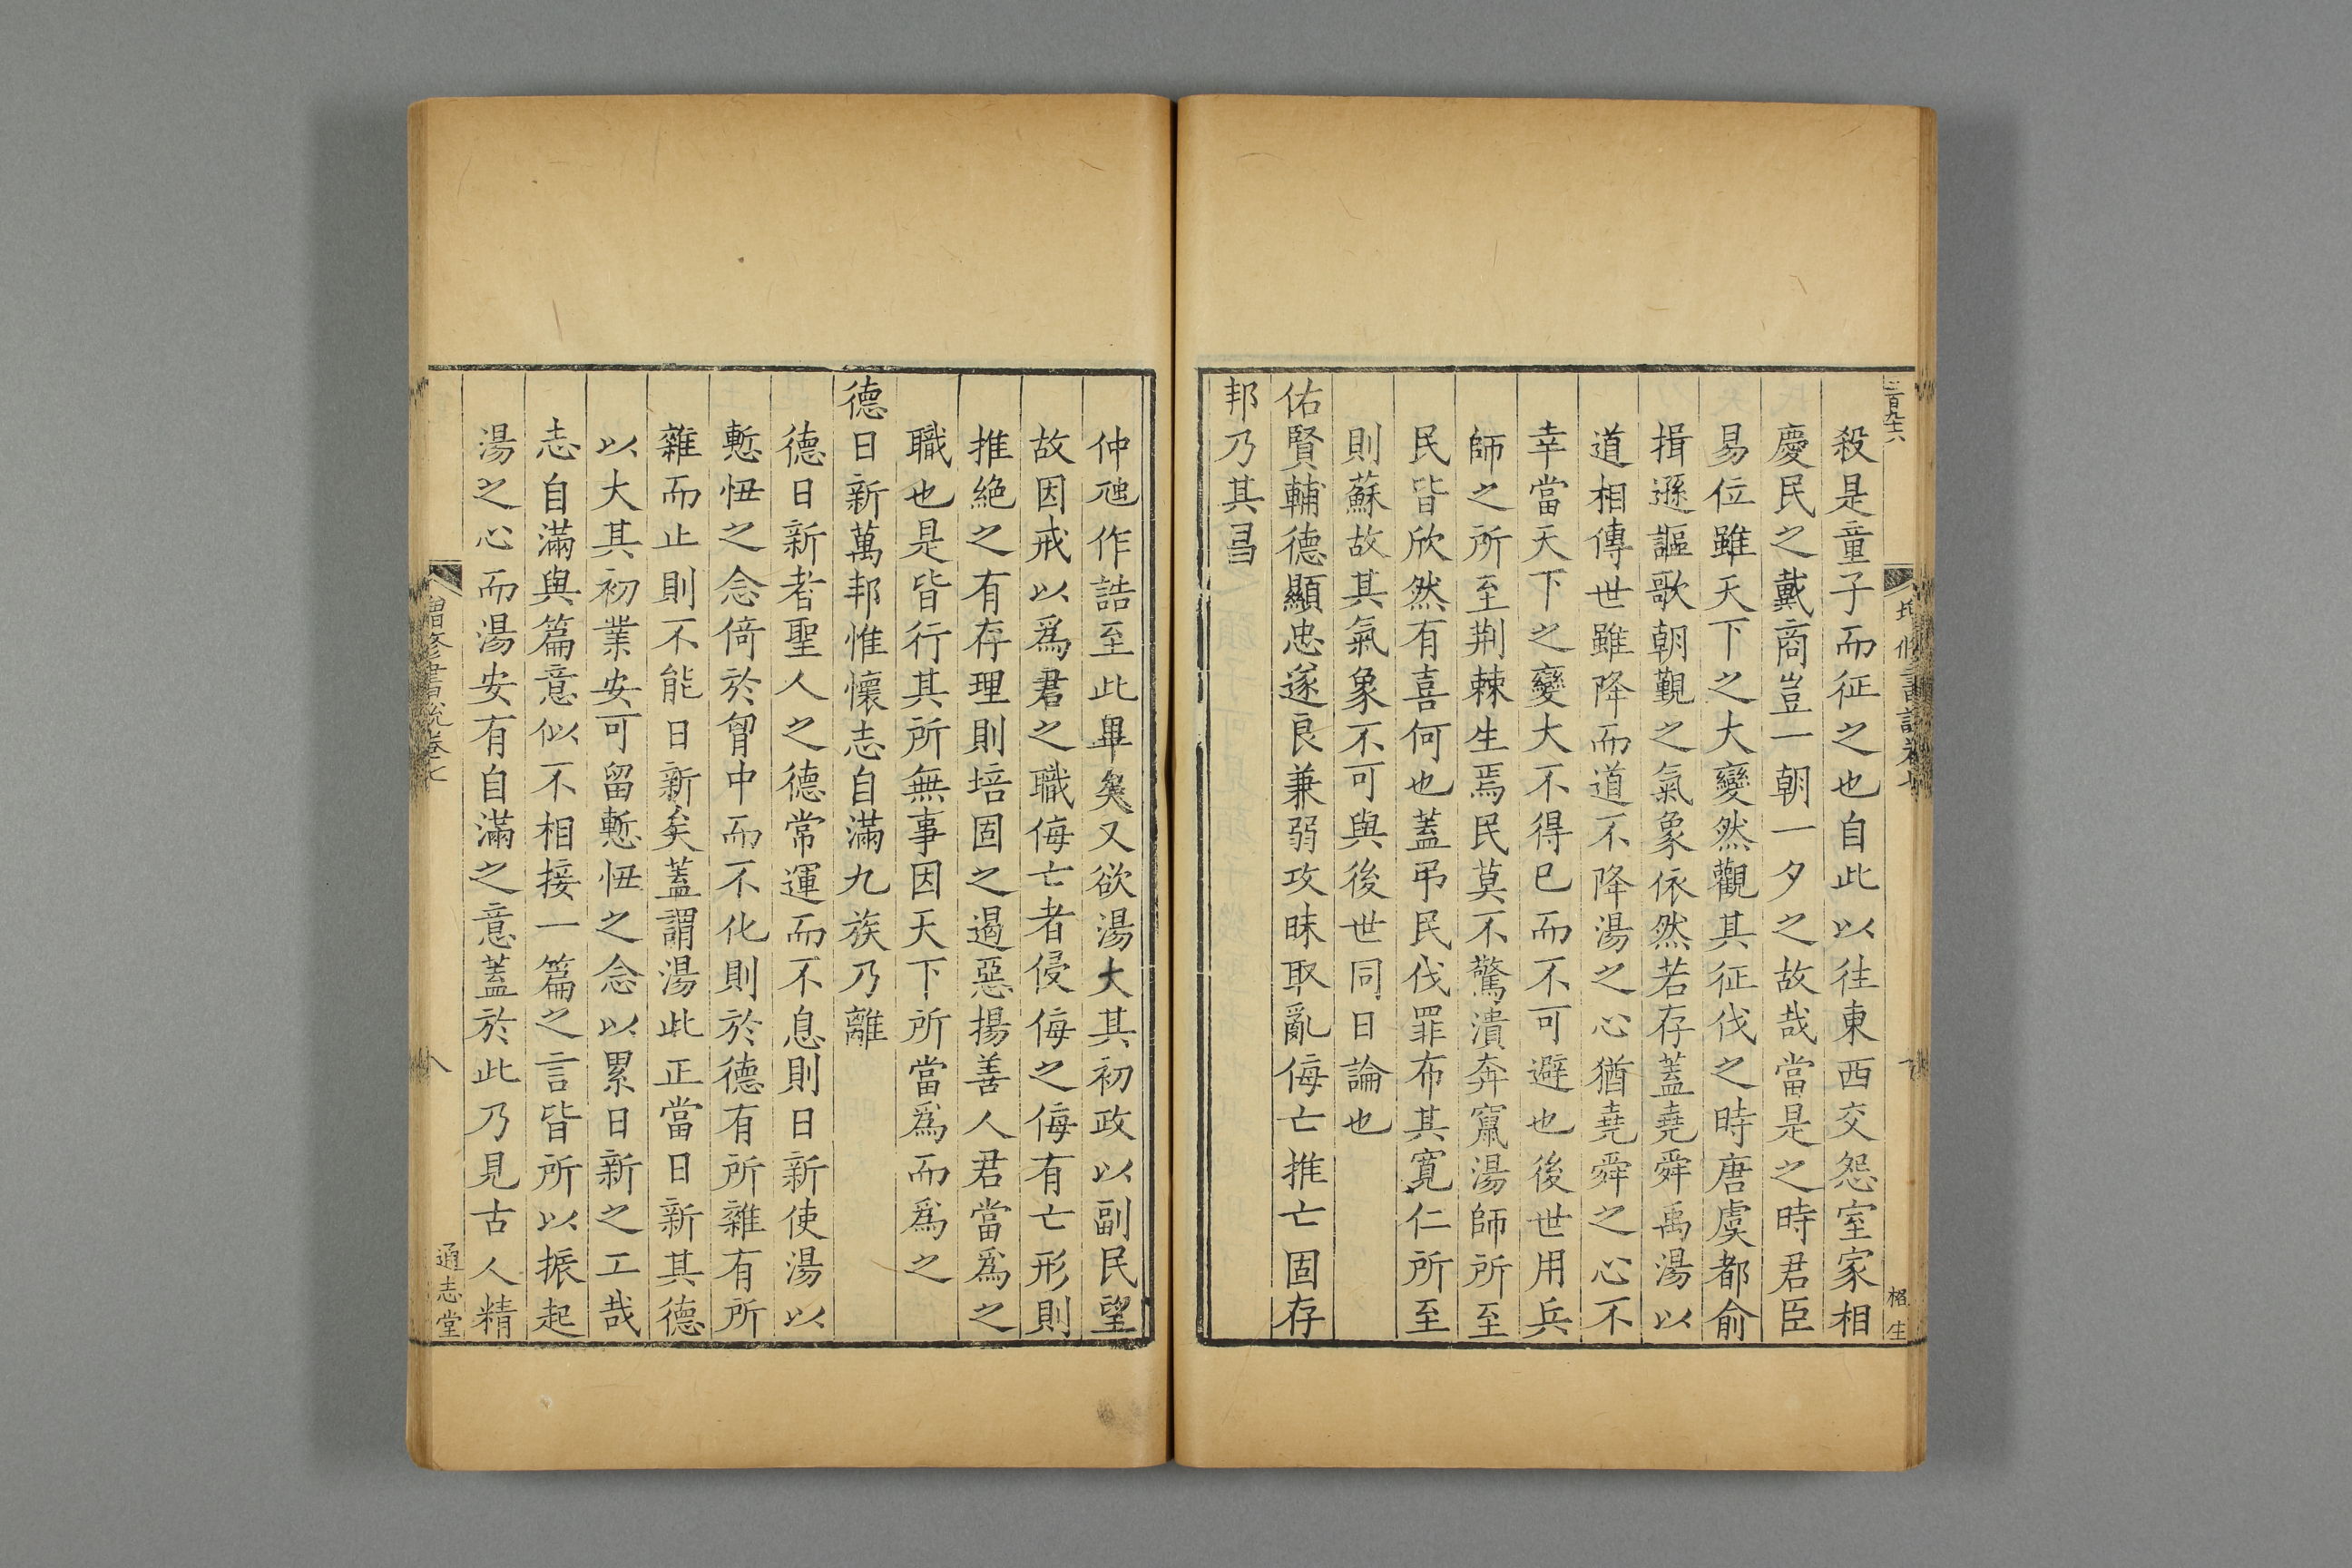 二百九十六
殺是童子而征之也自此以往東西交怨室家相
慶民之戴商豈一朝一夕之故哉當是之時君臣
易位雖天下之大變然觀其征伐之時唐虞都俞
揖遜謳歌朝覲之氣象依然若存蓋堯舜禹湯以
道相傳世雖降而道不降湯之心猶堯舜之心不
幸當天下之變大不得已而不可避也後世用兵
師之所至荆棘生焉民莫不驚潰奔竄湯師所至
民皆欣然有喜何也蓋弔民伐罪布其寛仁所至
則蘇故其氣象不可與後世同日論也
佑賢輔德顯忠遂良兼弱攻昧取亂侮亡推亡固存
邦乃其昌
仲虺作誥至此畢矣又欲湯大其初政以副民望
故因戒以爲君之職侮亡者侵侮之侮有亡形則
推絶之有存理則培固之遏惡揚善人君當爲之
職也是皆行其所無事因天下所當爲而爲之
德日新萬邦惟懷志自滿九族乃離
德日新者聖人之德常運而不息則日新使湯以
慙忸之念倚於胷中而不化則於德有所雜有所
雜而止則不能日新矣蓋謂湯此正當日新其德
以大其初業安可留慙忸之念以累日新之工哉
志自滿與篇意似不相接一篇之言皆所以振起
湯之心而湯安有自滿之意蓋於此乃見古人精
增修書說卷七
八
通志堂